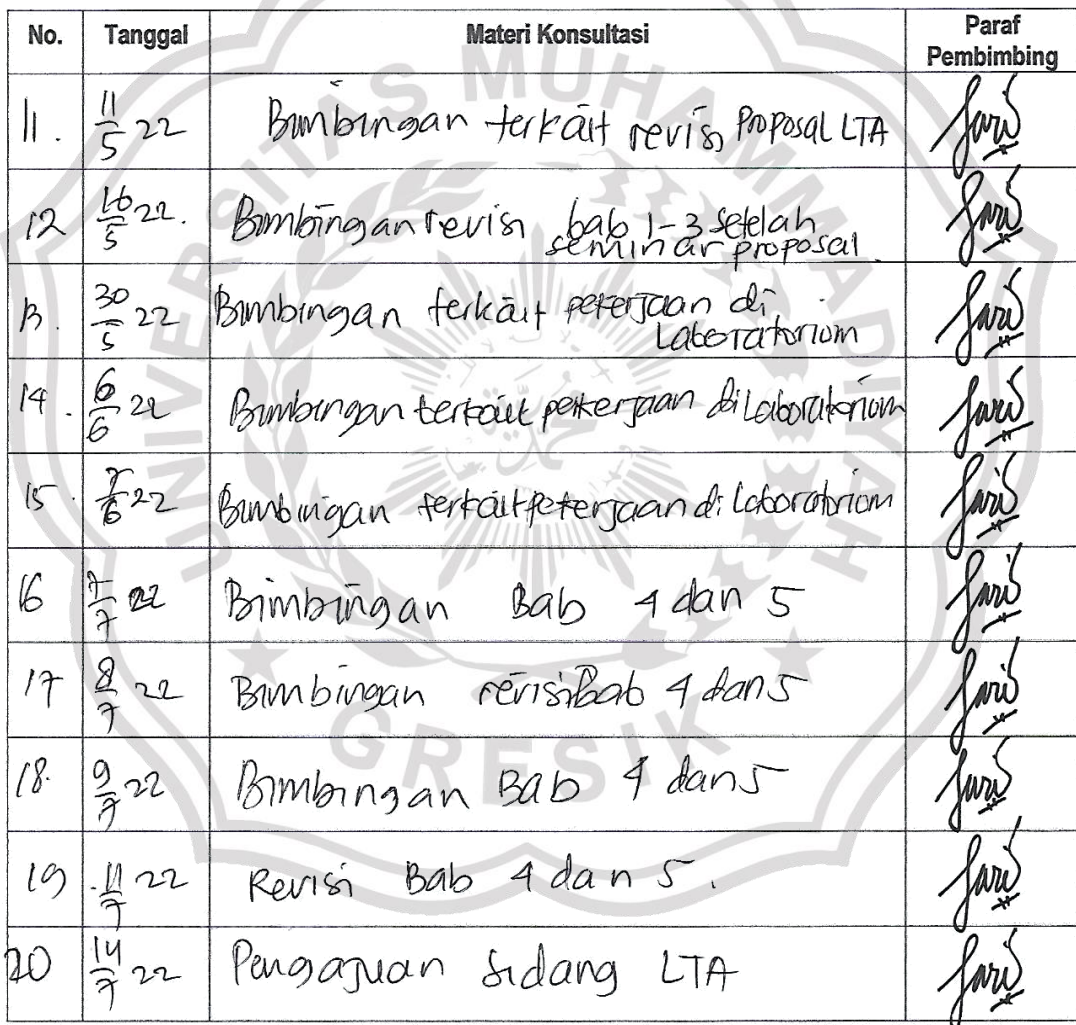 No. Tanggal Materi Konsultasi Paraf
Pembimbing
11. 11/5 22 Bimbingan terkait revisi Proposal LTA
12 16/5 22. Bimbingan revisi bab 1-3 setelah
seminar proposal.
13. 30/5 22 Bimbingan terkait pekerjaan di
Laboratorium
14. 6/6 22 Bimbingan terkait pekerjaan di Laboratorium
15. 7/6 22 Bimbingan terkait pekerjaan di Laboratorium
16 7/7 22 Bimbingan Bab 4 dan 5
17 8/7 22 Bimbingan revisi Bab 4 dan 5
18. 9/7 22 Bimbingan Bab 4 dan 5
19 11/7 22 Revisi Bab 4 dan 5.
20 14/7 22 Pengajuan Sidang LTA
UNIVERSITAS MUHAMMADIYAH
GRESIK